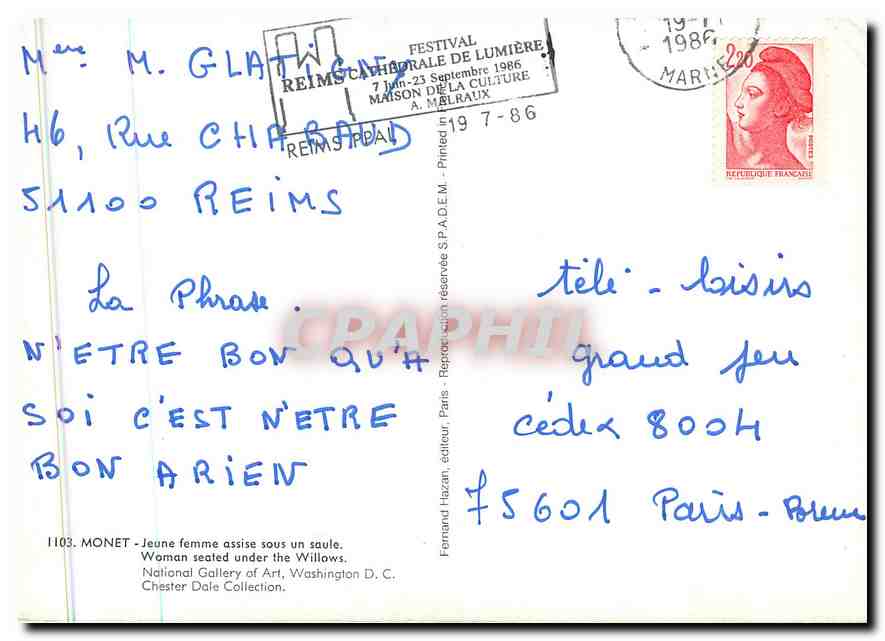 Mme M. GLATiGNY
46, Rue CHABAUD
51100 REIMS
La Phrase.
N'ETRE BON QU'A
SOi C'EST N'ETRE
BON ARiEN
1103. MONET - Jeune femme assise sous un saule.
Woman seated under the Willows.
National Gallery of Art, Washington D. C.
Chester Dale Collection.
REIMS CATHÉDRALE DE LUMIÈRE
FESTIVAL
7 Juin-23 Septembre 1986
MAISON DE LA CULTURE
A. MALRAUX
REIMS PPAL
19 7-86
1986
MARNE
2,20
POSTES
REPUBLIQUE FRANÇAISE
Fernand Hazan, éditeur, Paris - Reproduction réservée S.P.A.D.E.M. - Printed in
télé - loisirs
grand jeu
cédex 8004
75601 Paris-
CPAPHIL